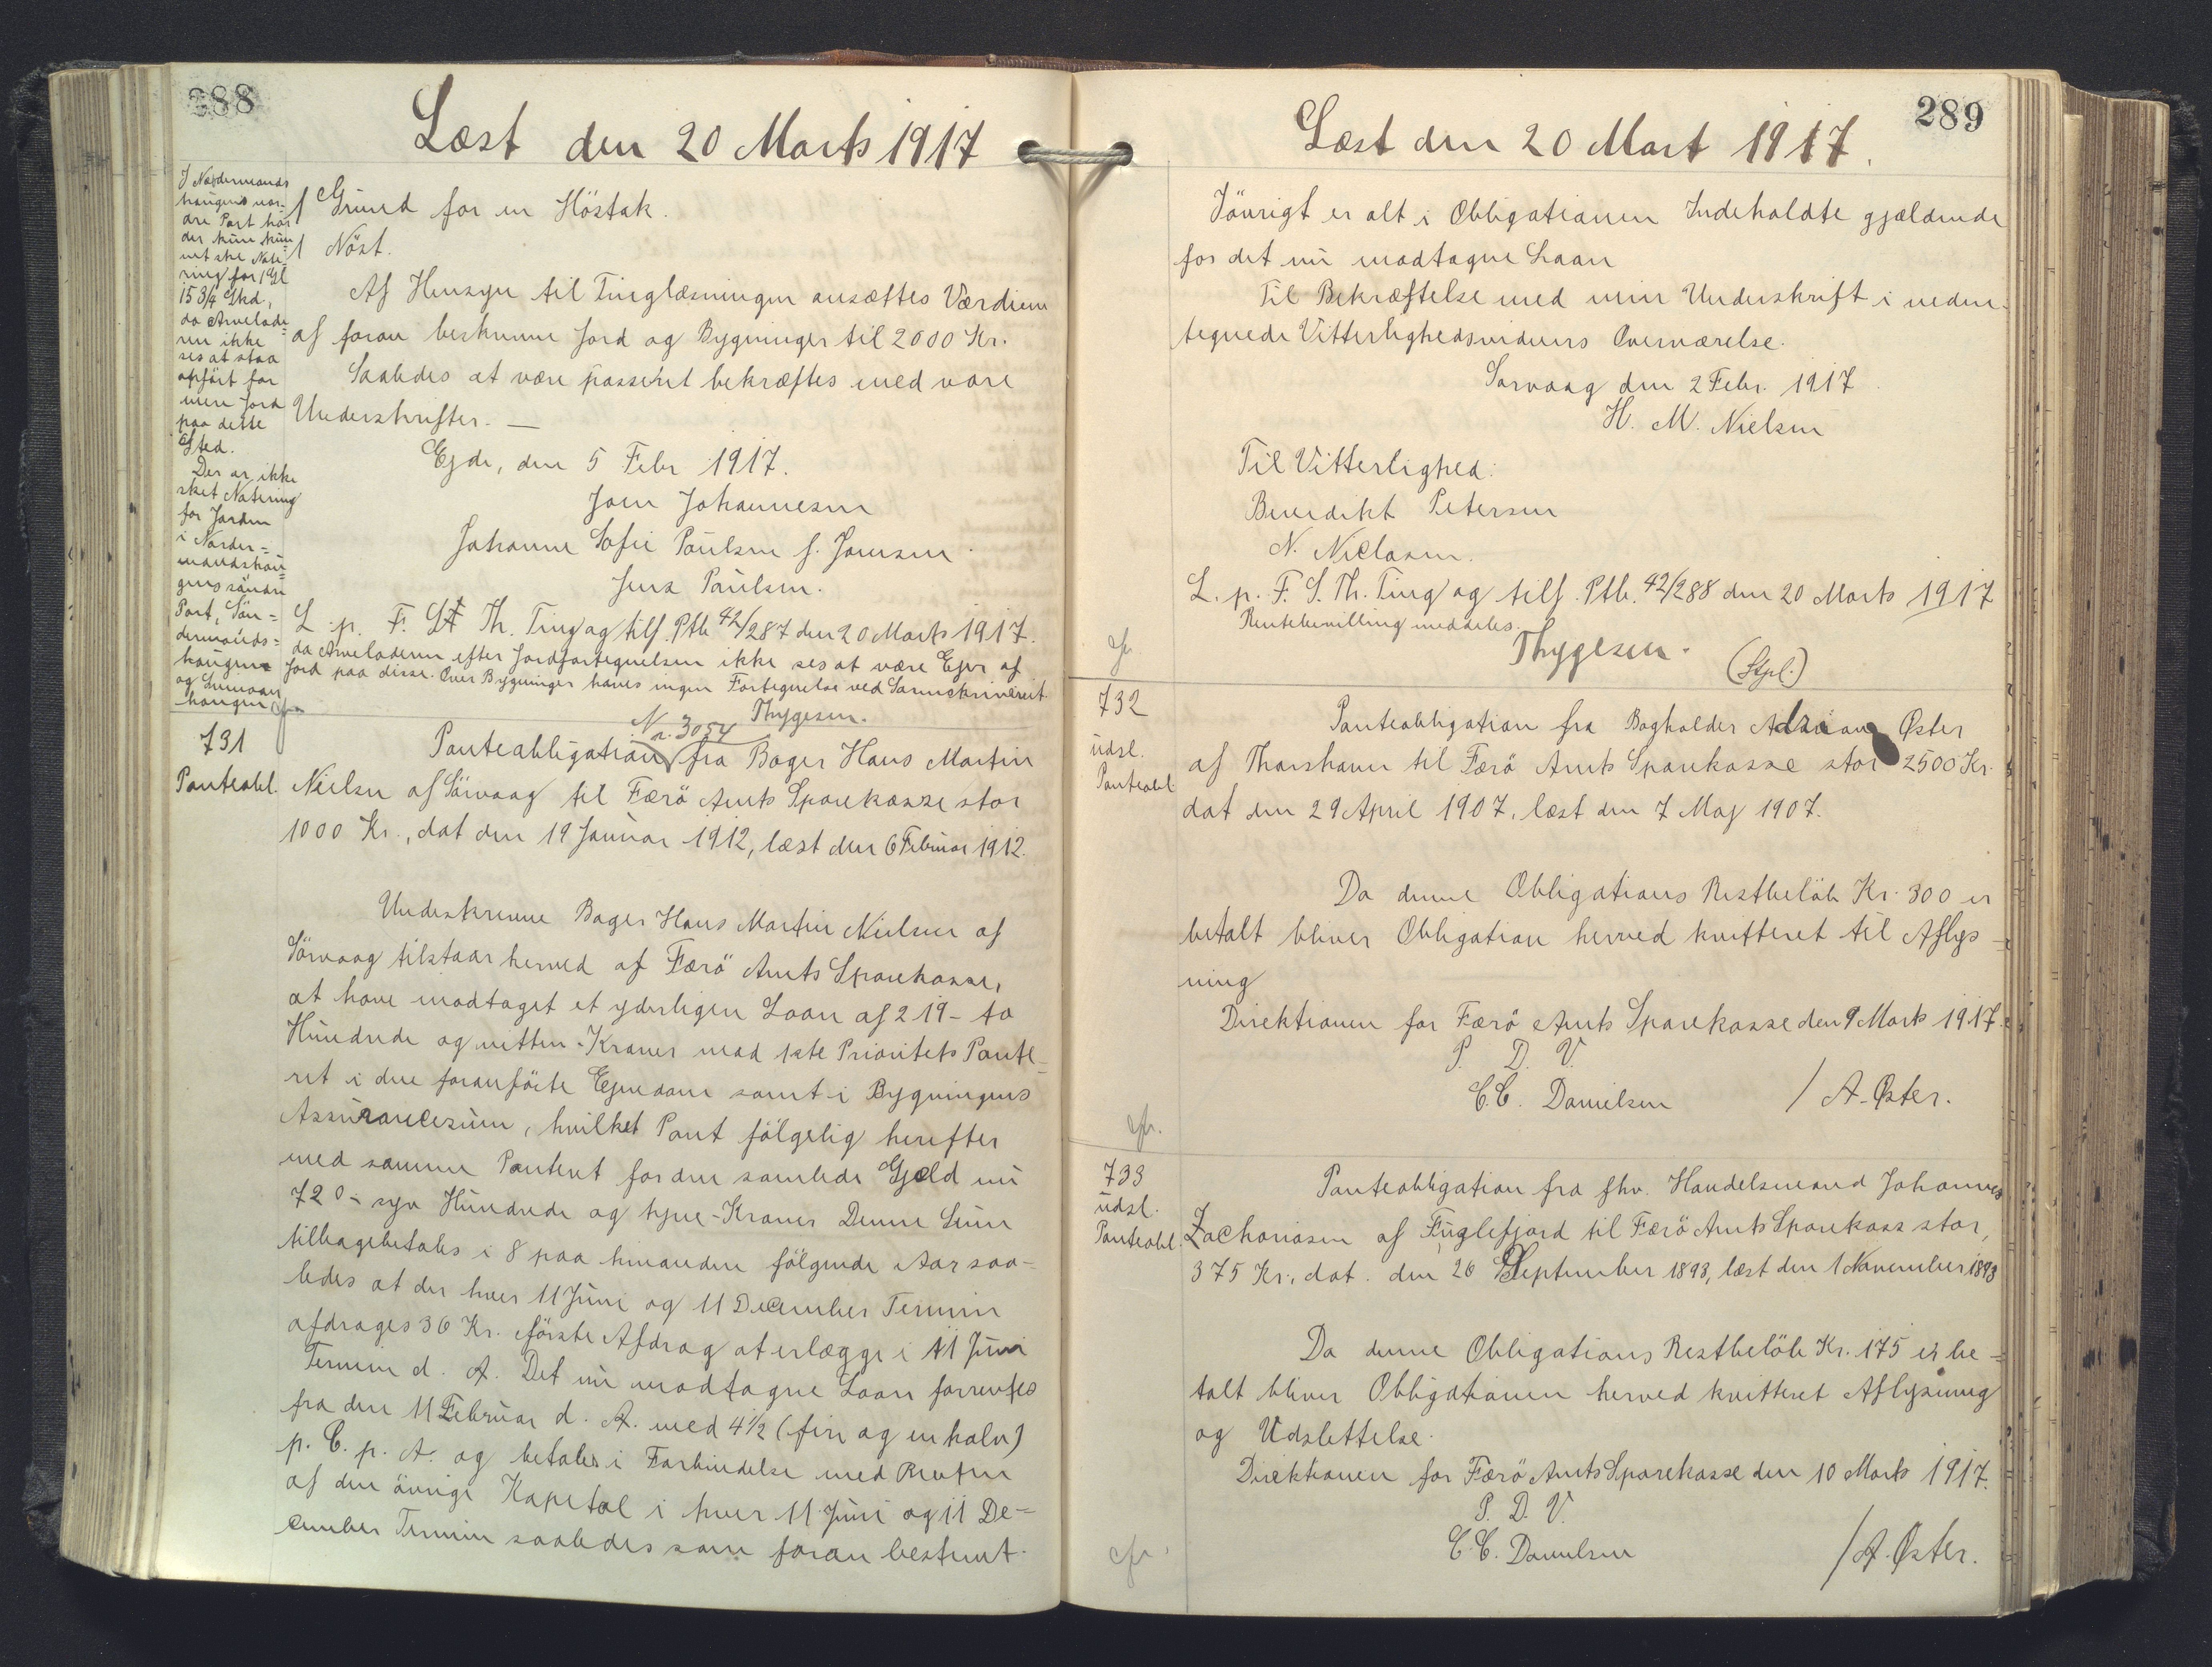 288
Læst den 20 Marts 1917
I Nordermands
haugens nor-
dre Part har
der kun kun
net ske Note-
ring for 1 Gl
15 3/4 Skd,
da Arvelade-
ren ikke
ses at staa
opført for
mere Jord
paa dette
Sted.
Der er ikke
sket Notering
for Jorden
i Norder=
mandshau
gens søndre
Part, Sön=
dermands=
haugen
og
haugen cfr
1 Grund for en Höstak.
1 Nöst.
Af Hensyn til Tinglæsningen ansættes Værdien
af foran beskrevne Jord og Bygninger til 2000 Kr.
Saaledes at være passeret bekræftes med vore
Underskrifter. —
Ejde, den 5 Febr 1917.
Joen Johannesen
Johanne Sofie Paulsen f. Joensen.
Jens Paulsen.
L. p. F. S. Th. Ting og tilf. Ptb 42/287 den 20 Marts 1917.
da Arveladeren efter Jordfortegnelsen ikke ses at være Ejer af
Jord paa disse. Over Bygninger haves ingen Fortegnelse ved Sorenskriveriet
Thygesen.
Nr. 3054
731
Panteobl.
Panteobligation fra Bager Hans Martin
Nielsen af Sörvaag til Færö Amts Sparekasse stor
1000 Kr., dat den 19 Januar 1912, læst den 6 Februar 1912.
Underskrevne Bager Hans Martin Nielsen af
Sörvaag tilstaar herved af Færö Amts Sparekasse,
at have modtaget et yderligere Laan af 219 - to
Hundrede og nitten - Kroner mod 1ste Prioritets Pante-
ret i den foranförte Ejendom samt i Bygningens
Assurancesum, hvilket Pant fölgelig herefter
med samme Panteret for den samlede Gjæld nu
720 - syv Hundrede og tyve - Kroner Denne Sum
tilbagebetales i 8 paa hinanden fölgende Aar saa-
ledes at der hver 11 Juni og 11 December Termin
afdrages 36 Kr. förste Afdrag at erlægge i 11 Juni
Termin d. A. Det nu modtagne Laan forrentes
fra den 11 Februar d. A. med 4½ (fire og en halv)
p. C. p. A. og betales i Forbindelse med Renten
af den övrige Kapital i hver 11 Juni og 11 De=
cember Termin saaledes som foran bestemt.
289
Læst den 20 Mart 1917.
Iövrigt er alt i Obligationen Indeholdte gjældende
for det nu modtagne Laan
Til Bekræftelse med min Underskrift i neden=
tegnede Vitterlighedsvidners Overværelse.
Sorvaag den 2 Febr. 1917
H. M. Nielsen
Til Vitterlighed:
Benedikt Petersen
N. Niclasen.
L. p. F. S. Th. Ting og tilf. Ptb. 42/288 den 20 Marts 1917
Rentebevilling meddeles.
Thygesen.
(Stpl.)
cfr
732
udsl.
Panteobl
Panteobligation fra Bogholder Adrian Øster
af Thorshavn til Færö Amts Sparekasse stor 2500 Kr.
dat den 29 April 1907, læst den 7 Maj 1907.
Da denne Obligations Restbelöb Kr. 300 er
betalt bliver Obligation herved kvitteret til Aflys-
ning
Direktionen for Færö Amts Sparekasse den 9 Marts 1917.
P. D. V.
C.C. Danielsen / A. Øster.
cfr.
733
udsl.
Panteobl.
Panteobligation fra fhv. Handelsmand Johannes
Zachariasen af Fuglefjord til Færö Amts Sparekass stor,
375 Kr., dat. den 26 September 1893, læst den 1 November 1893
Da denne Obligations Restbelöb Kr. 175 er be=
talt bliver Obligationen herved kvitteret Aflysning
og Udslettelse.
Direktionen for Færö Amts Sparekasse den 10 Marts 1917.
P. D. V.
C.C. Danielsen / A. Øster.
cfr.